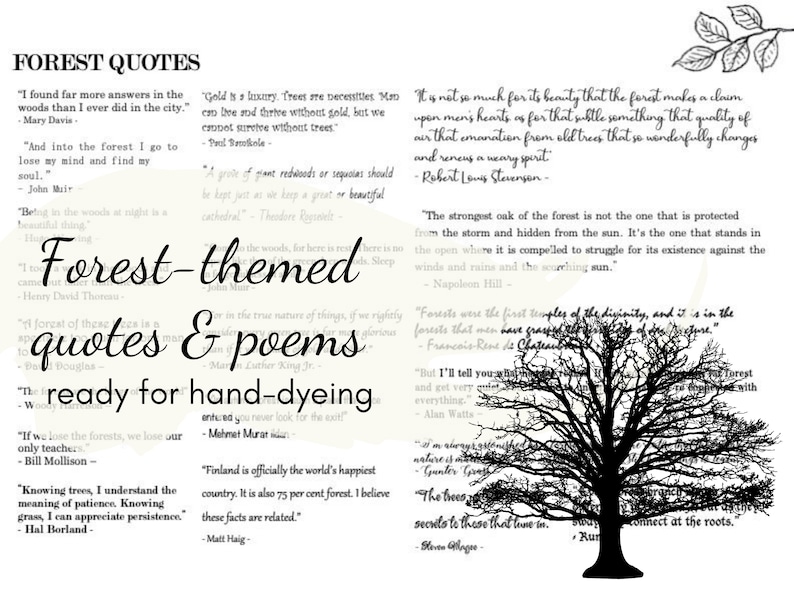 FOREST QUOTES
"I found far more answers in the
woods than I ever did in the city."
- Mary Davis -
"And into the forest I go to
lose my mind and find my
soul."
– John Muir –
"Being in the woods at night is a
beautiful thing."
- Hugo Weaving -
- Henry David Thoreau -
"A forest of these trees is a
- David Douglas -
- Woody Harrelson -
"If we lose the forests, we lose our
only teachers."
- Bill Mollison –
"Knowing trees, I understand the
meaning of patience. Knowing
grass, I can appreciate persistence."
- Hal Borland -
"Gold is a luxury. Trees are necessities. Man
can live and thrive without gold, but we
cannot survive without trees."
- Paul
"A grove of giant redwoods or sequoias should
be kept just as we keep a great or beautiful
cathedral." - Theodore Roosevelt -
to the woods, for here is rest. There is no
of the green deep woods. Sleep
- John Muir -
or in the true nature of things, if we rightly
consider, every green tree is far more glorious
- Martin Luther King Jr. -
entered you never look for the exit!"
- Mehmet Murat ildan -
"Finland is officially the world's happiest
country. It is also 75 per cent forest. I believe
these facts are related."
- Matt Haig -
"It is not so much for its beauty that the forest makes a claim
upon men's hearts, as for that subtle something, that quality of
air that emanation from old trees, that so wonderfully changes
and renews a weary spirit."
- Robert Louis Stevenson -
"The strongest oak of the forest is not the one that is protected
from the storm and hidden from the sun. It's the one that stands in
the open where it is compelled to struggle for its existence against the
winds and rains and the scorching sun."
– Napoleon Hill –
"Forests were the first temples of the divinity, and it is in the
forests that men have grasped the
- Francois-Rene de Chateaubriand
"But I'll tell you what
forest
and get very quiet
connected with
everything."
- Alan Watts -
"I'm always astonished
nature is
- Gunter Grass
"The trees
secrets to those that tune in.
- Steven Magee -
connect at the roots."
Forest-themed
quotes & poems
ready for hand-dyeing